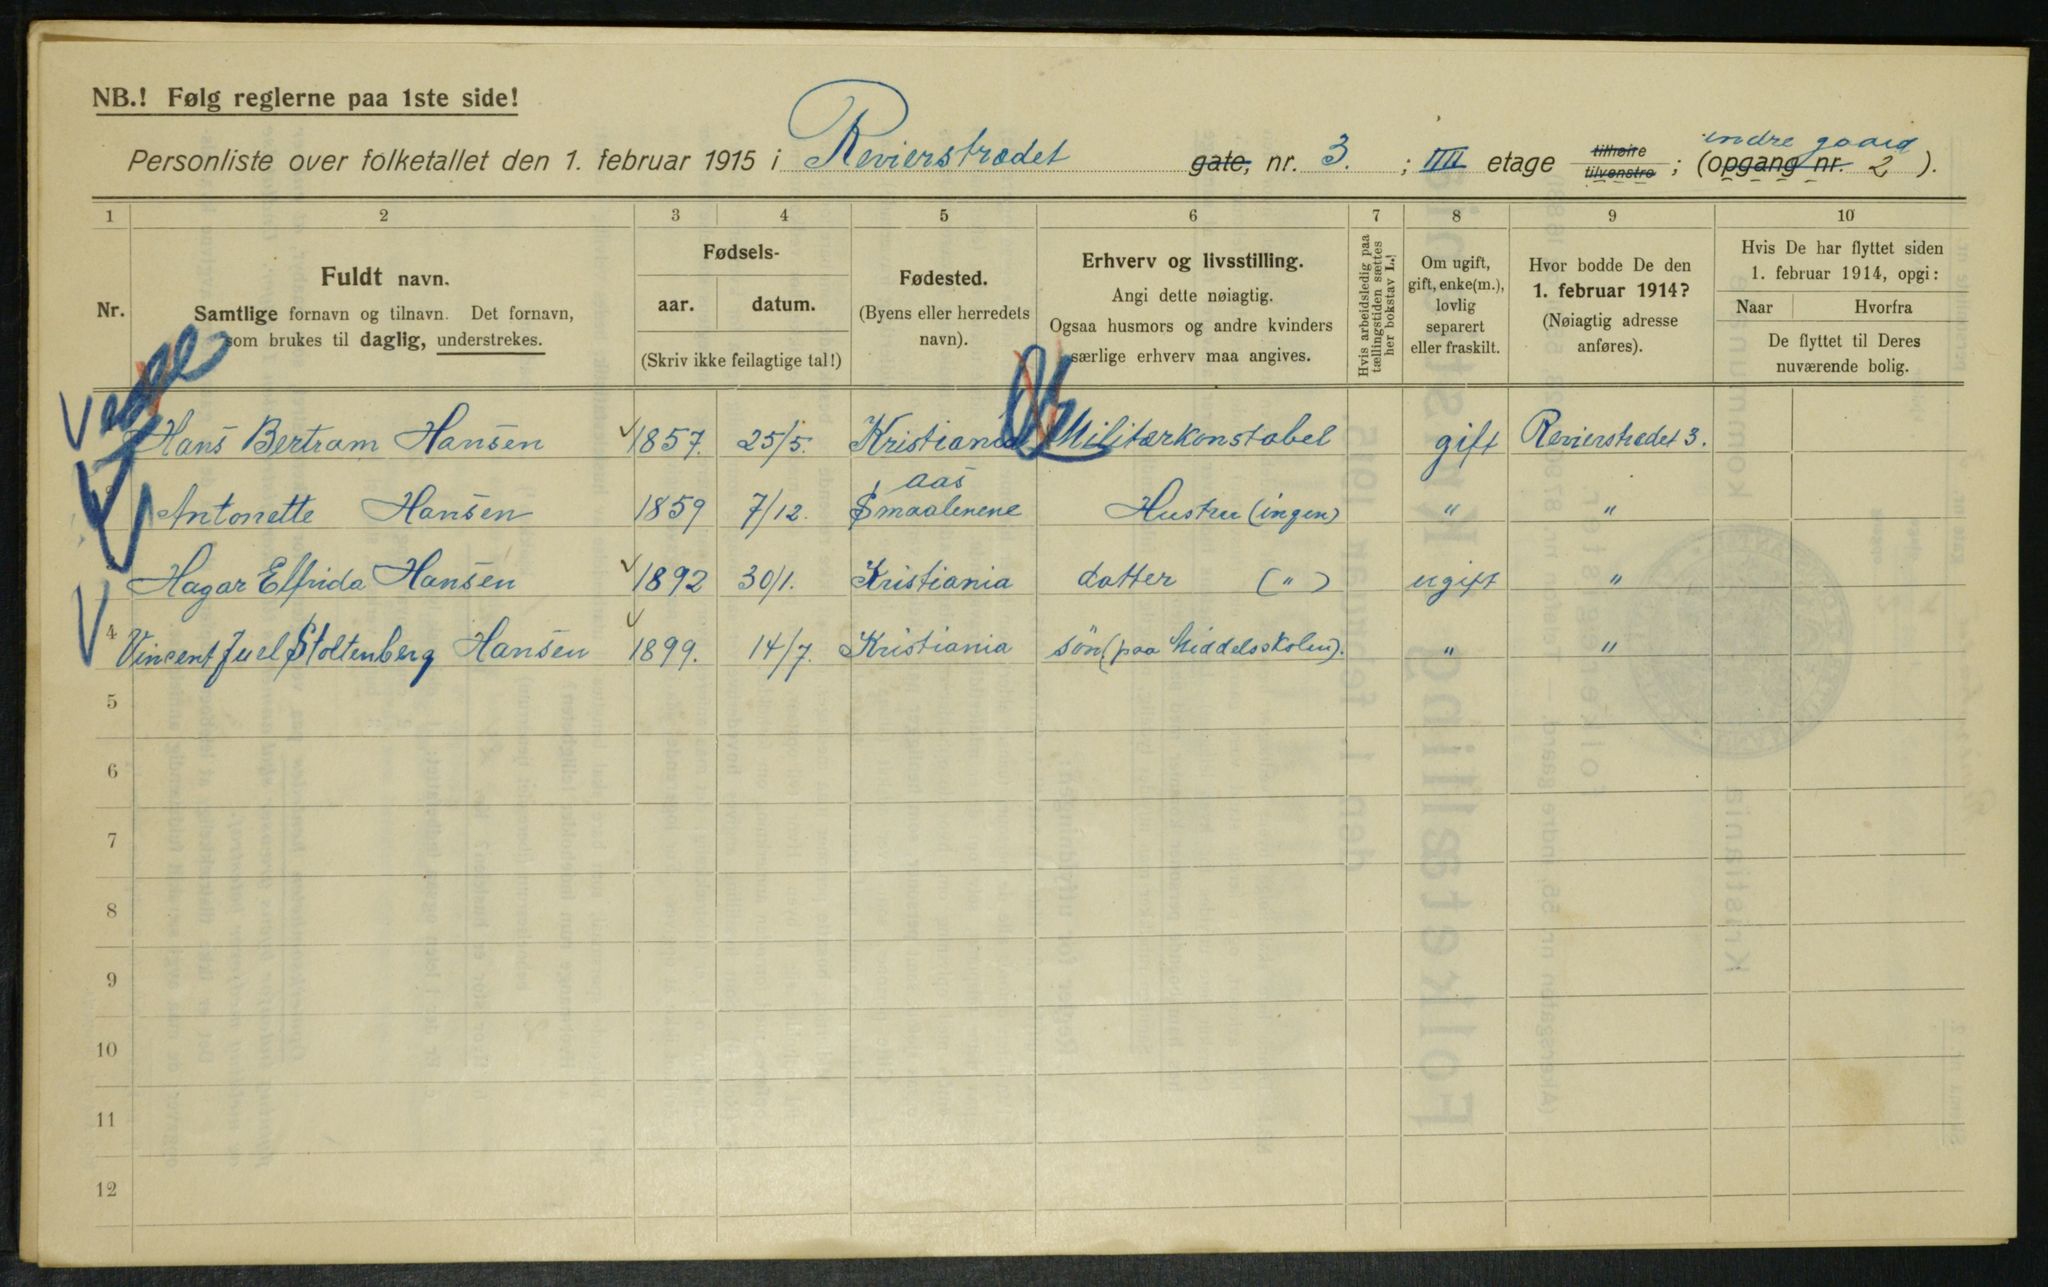 NB.! Følg reglerne paa 1ste side!
Personliste over folketallet den 1. februar 1915 i Revierstrædet gate, nr. 3. ; IIII etage tilhøire tilvenstre ; (opgang nr. indre gaard 2 ).
1 2 3 4 5 6 7 8 9 10
Nr.
Fuldt navn.
Samtlige fornavn og tilnavn. Det fornavn,
som brukes til daglig, understrekes.
Fødsels-
aar. datum.
(Skriv ikke feilagtige tal!)
Fødested.
(Byens eller herredets
navn).
Erhverv og livsstilling.
Angi dette nøiagtig.
Ogsaa husmors og andre kvinders
særlige erhverv maa angives.
Hvis arbeidsledig paa
tællingstiden sættes
her bokstav L.!
Om ugift,
gift, enke(m.),
lovlig
separert
eller fraskilt.
Hvor bodde De den
1. februar 1914?
(Nøiagtig adresse
anføres).
Hvis De har flyttet siden
1. februar 1914, opgi:
Naar Hvorfra
De flyttet til Deres
nuværende bolig.
Hans Bertram Hansen 1857. 25/5. Kristiania Militærkonstabel gift Revierstrædet 3.
Antonette Hansen 1859 7/12. aas Smaalenene Hustru (ingen) " "
Hagar Elfrida Hansen 1892 30/1. Kristiania datter (") ugift "
4 Vincent Juel Stoltenberg Hansen 1899. 14/7. Kristiania sön (paa Middelsskolen). " "
5
6
7
8
9
10
11
12